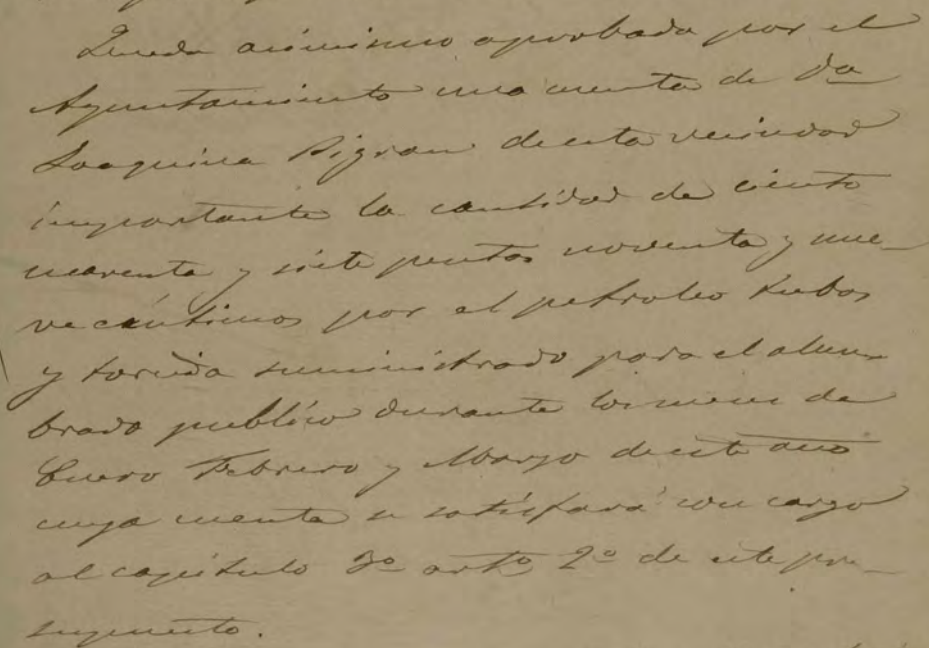 Queda asimismo aprobada por el
Ayuntamiento una cuenta de Dª
Joaquina Pigrau de esta vecindad
importante la cantidad de ciento
cuarenta y siete pentas noventa y nue-
ve céntimos por el petroleo tubos
y torcida suministrado para el alum-
brado publico durante los meses de
Enero Febrero y Marzo de este año
cuya cuenta se satisfará con cargo
al capitulo 3º artº 2º de este pre-
supuesto.